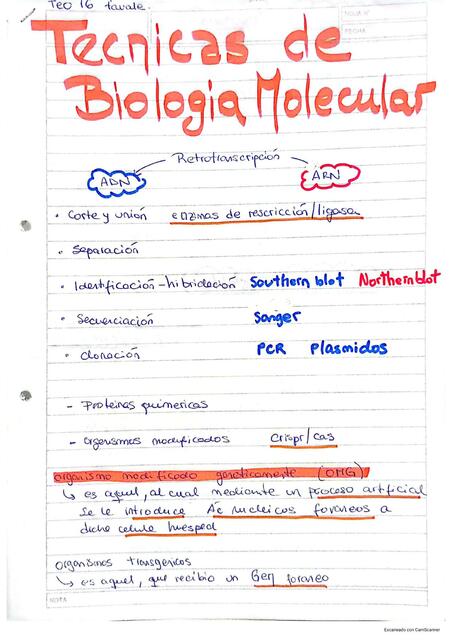 Teo 16 tavale.
HOJA N°
FECHA
Tecnicas de
Biologia Molecular
Retrotranscripción
ADN ARN
• Corte y unión enzimas de rescricción/ligasa
• Separación
• Identificación - hibridación Southern blot Northern blot
• Secuenciación Sanger
• clonación PCR Plasmidos
- Proteinas quimericas
- organismos modificados Crispr/cas
organismo modificado geneticamente (OMG)
↳ es aquel, al cual mediante un proceso artificial
se le introduce Ac nucleicos foraneos a
dicha celula huesped
organismos transgenicos
↳ es aquel, que recibio un Gen foraneo
NOTA
Escaneado con CamScanner